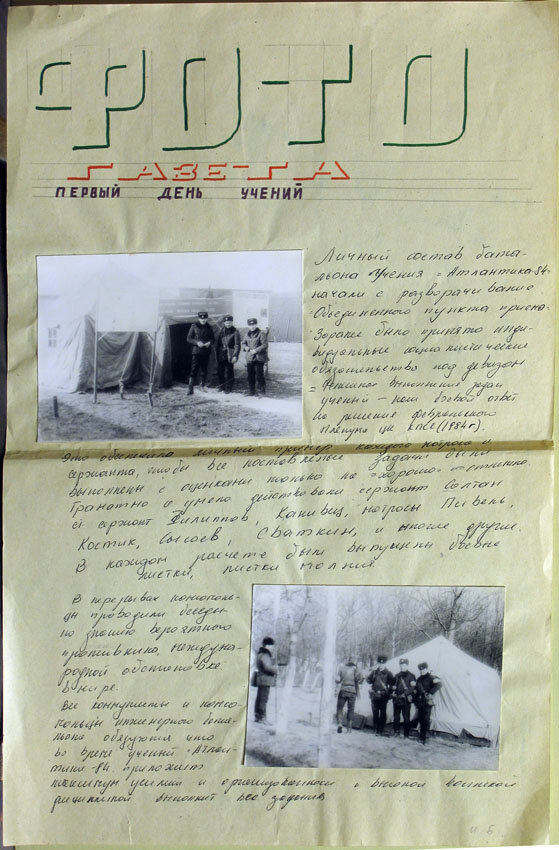 ФОТО
ГАЗЕТА
ПЕРВЫЙ ДЕНЬ УЧЕНИЙ
Личный состав бата-
льона Учения "Атлантика-84"
начали с разворачивание
Объединенного пункта приема.
Заранее было принято инди-
видуальные социалистические
обязательство под девизом
учений - наш боевой ответ
на решение февральского
Пленума ЦК КПСС (1984г).
Это обеспечило личный пример каждого матроса и
сержанта, чтобы все поставленые задачи были
выполнены с оценками только на "хорошо" и "отлично.
Грамотно и умело действовали сержант Солтан
ст сержант Филиппов, Канивец, матросы Пивень,
Костик, Сысоев, Сваткин, и многие другие.
В каждом расчете был выпущены боевые
листки, листки молнии.
В перерывах комсомоль-
цы проводили беседы
по знанию вероятного
противника, междуна-
родной обстановке
в мире.
Все коммунисты и комсо-
мольцы инженерного бата-
льона обязуются что
во время учений "Атлан-
тика-84 приложат
максимум усилий и организованности и высокой воинской
дисциплиной выполнит все задания